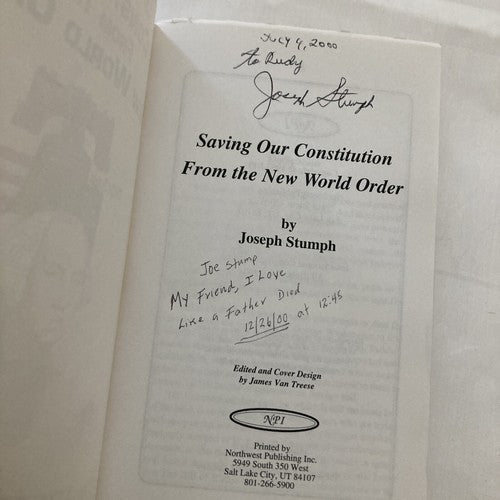 July 4, 2000
to Rudy
Joseph Stumph
NPI
Saving Our Constitution
From the New World Order
by
Joseph Stumph
Joe Stump
My Friend, I Love
Like a Father Died
12/26/00 at 12:45
Edited and Cover Design
by James Van Treese
NPI
Printed by
Northwest Publishing Inc.
5949 South 350 West
Salt Lake City, UT 84107
801-266-5900